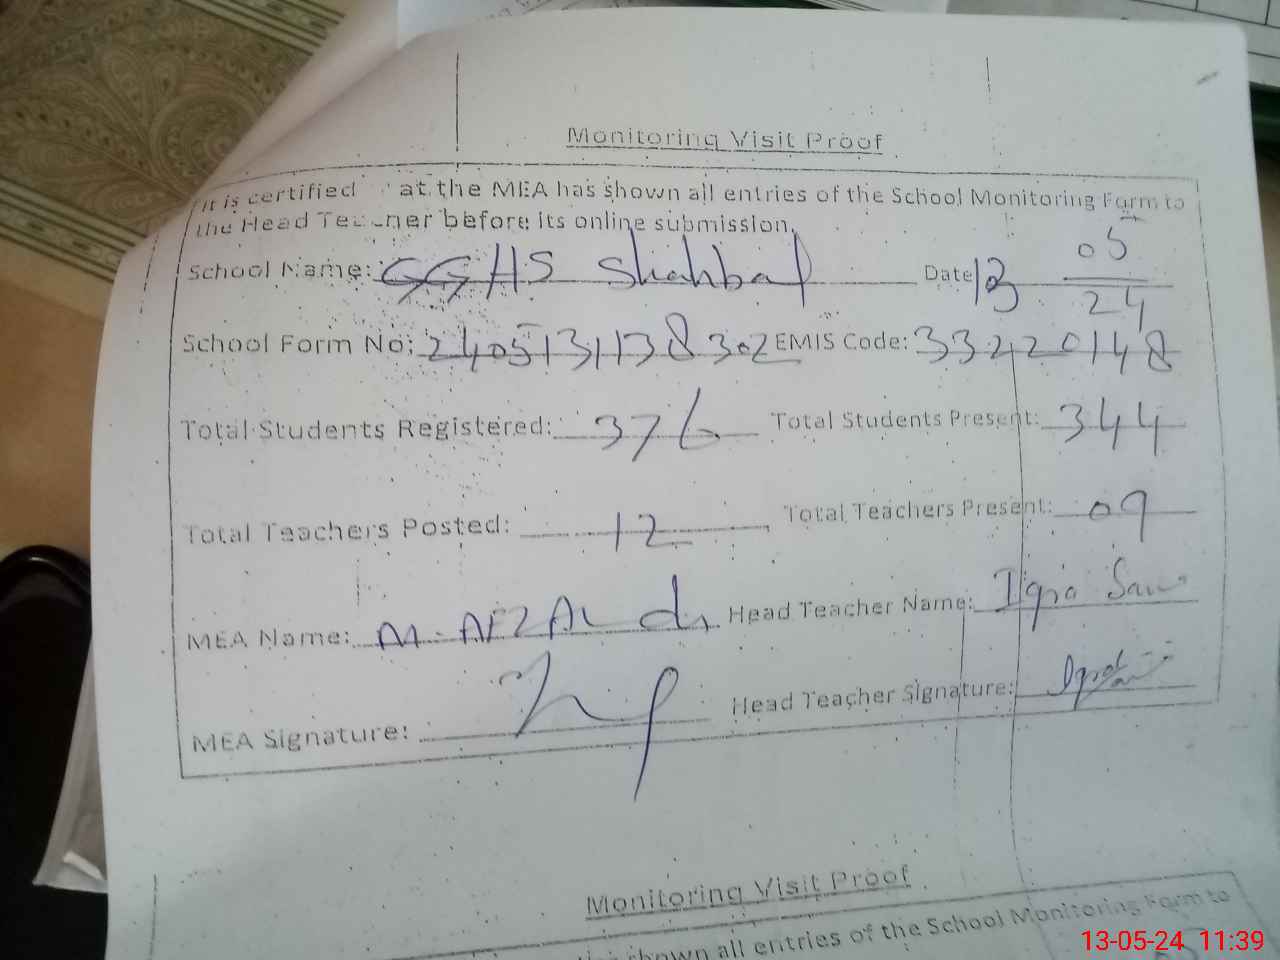 Monitoring Visit Proof
It is certified at the MEA has shown all entries of the School Monitoring Form to
the Head Teacher before its online submission.
School Name: GGHS Shahbal Date 13 05 24
School Form No: 2405131138302 EMIS Code: 33220148
Total Students Registered: 376 Total Students Present: 344
Total Teachers Posted: 12 Total Teachers Present: 09
MEA Name: M. AFZAL Head Teacher Name: Iqra
MEA Signature: Head Teacher Signature: Iqra
Monitoring Visit Proof
shown all entries of the School Monitoring Form to
13-05-24 11:39